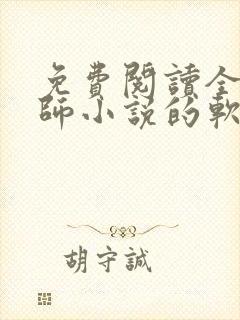 免費閱讀全
師小説的軟
胡守誠